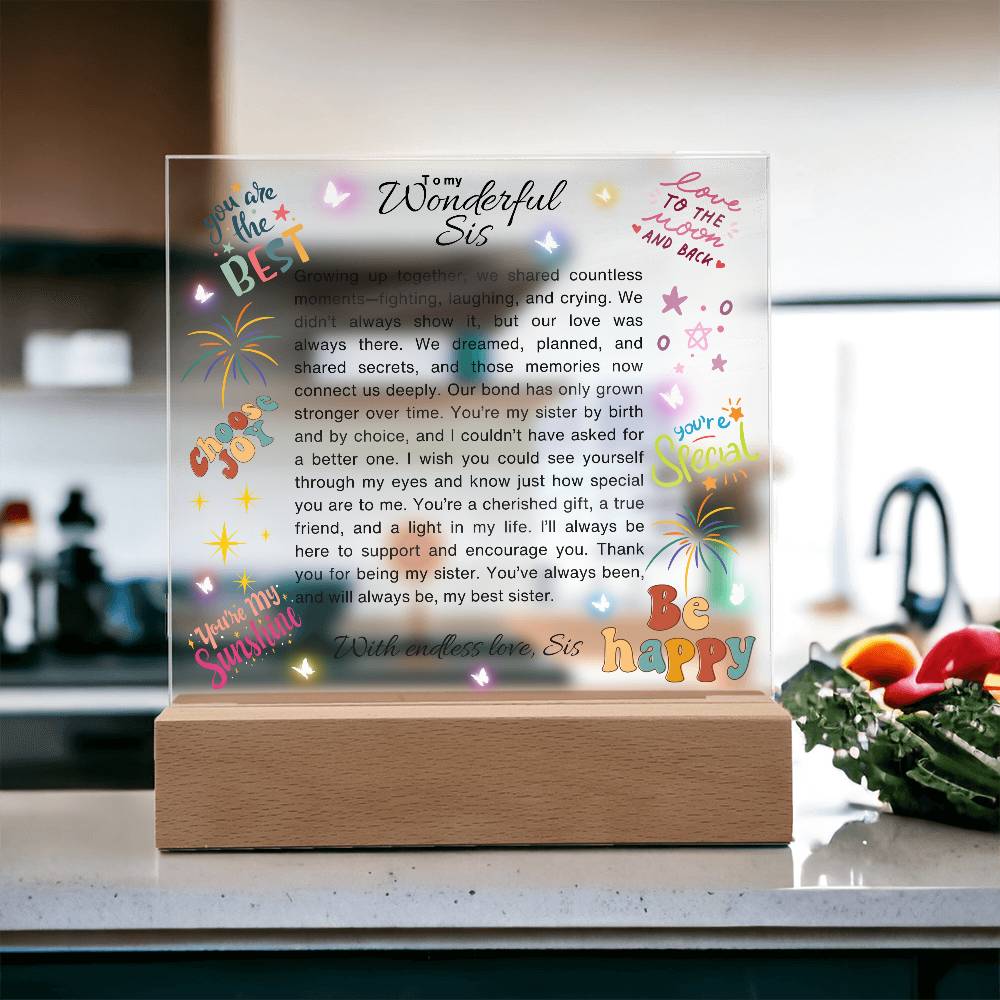 To my
Wonderful
Sis
you are
the
BEST
love
TO THE
moon
AND BACK
Growing up together, we shared countless
moments—fighting, laughing, and crying. We
didn't always show it, but our love was
always there. We dreamed, planned, and
shared secrets, and those memories now
connect us deeply. Our bond has only grown
stronger over time. You're my sister by birth
and by choice, and I couldn't have asked for
a better one. I wish you could see yourself
through my eyes and know just how special
you are to me. You're a cherished gift, a true
friend, and a light in my life. I'll always be
here to support and encourage you. Thank
you for being my sister. You've always been,
and will always be, my best sister.
choose
JOY
you're
Special
You're My
Sunshine
Be
happy
With endless love, Sis